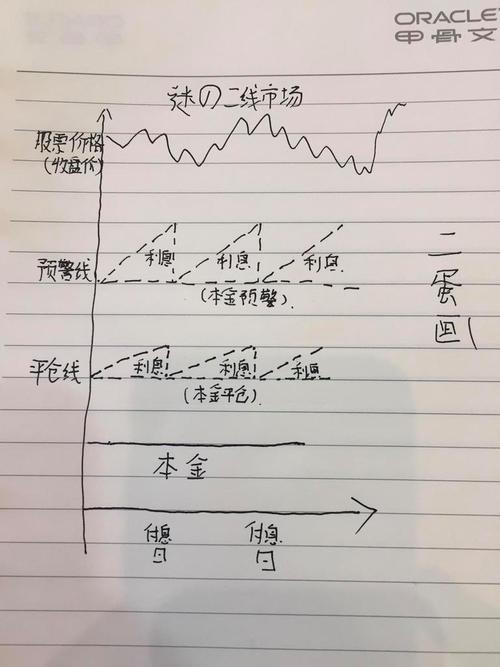 ORACLE
甲骨文
谜の二线市场
股票价格
(收盘价)
利息 利息 利息
预警线
(本金预警)
二蛋画
利息 利息 利息
平仓线
(本金平仓)
本金
付息日 付息日